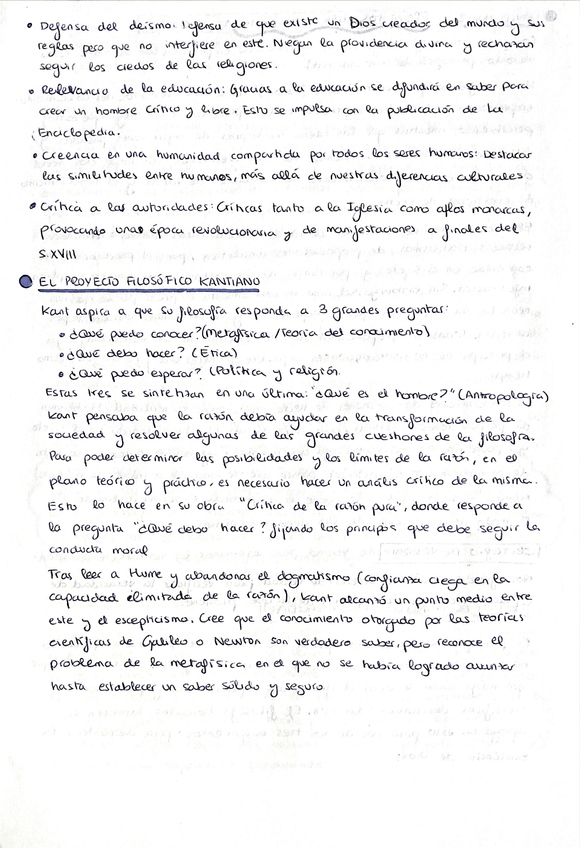 • Defensa del deísmo: Defensa de que existe un Dios creador del mundo y sus
reglas pero que no interfiere en este. Niegan la providencia divina y rechazan
seguir los credos de las religiones.
• Relevancia de la educación: Gracias a la educación se difundirá en saber para
crear un hombre crítico y libre. Esto se impulsa con la publicación de la
Enciclopedia.
• Creencia en una humanidad compartida por todos los seres humanos: Destacar
las similitudes entre humanos, más allá de nuestras diferencias culturales
• Crítica a las autoridades: Críticas tanto a la Iglesia como a los monarcas,
provocando una época revolucionaria y de manifestaciones a finales del
S.XVIII
EL PROYECTO FILOSÓFICO KANTIANO
Kant aspira a que su filosofía responda a 3 grandes preguntas:
• ¿Qué puedo conocer? (Metafísica / Teoría del conocimiento)
• ¿Qué debo hacer? (Ética)
• ¿Qué puedo esperar? (Política y religión.
Estas tres se sintetizan en una última: "¿Qué es el hombre?" (Antropología)
Kant pensaba que la razón debía ayudar en la transformación de la
sociedad y resolver algunas de las grandes cuestiones de la filosofía.
Para poder determinar las posibilidades y los límites de la razón, en el
plano teórico y práctico, es necesario hacer un análisis crítico de la misma.
Esto lo hace en su obra "Crítica de la razón pura", donde responde a
la pregunta "¿Qué debo hacer? fijando los principios que debe seguir la
conducta moral
Tras leer a Hume y abandonar el dogmatismo (confianza ciega en la
capacidad ilimitada de la razón), Kant alcanzó un punto medio entre
este y el escepticismo. Cree que el conocimiento otorgado por las teorías
científicas de Galileo o Newton son verdadero saber, pero reconoce el
problema de la metafísica en el que no se había logrado avanzar
hasta establecer un saber sólido y seguro